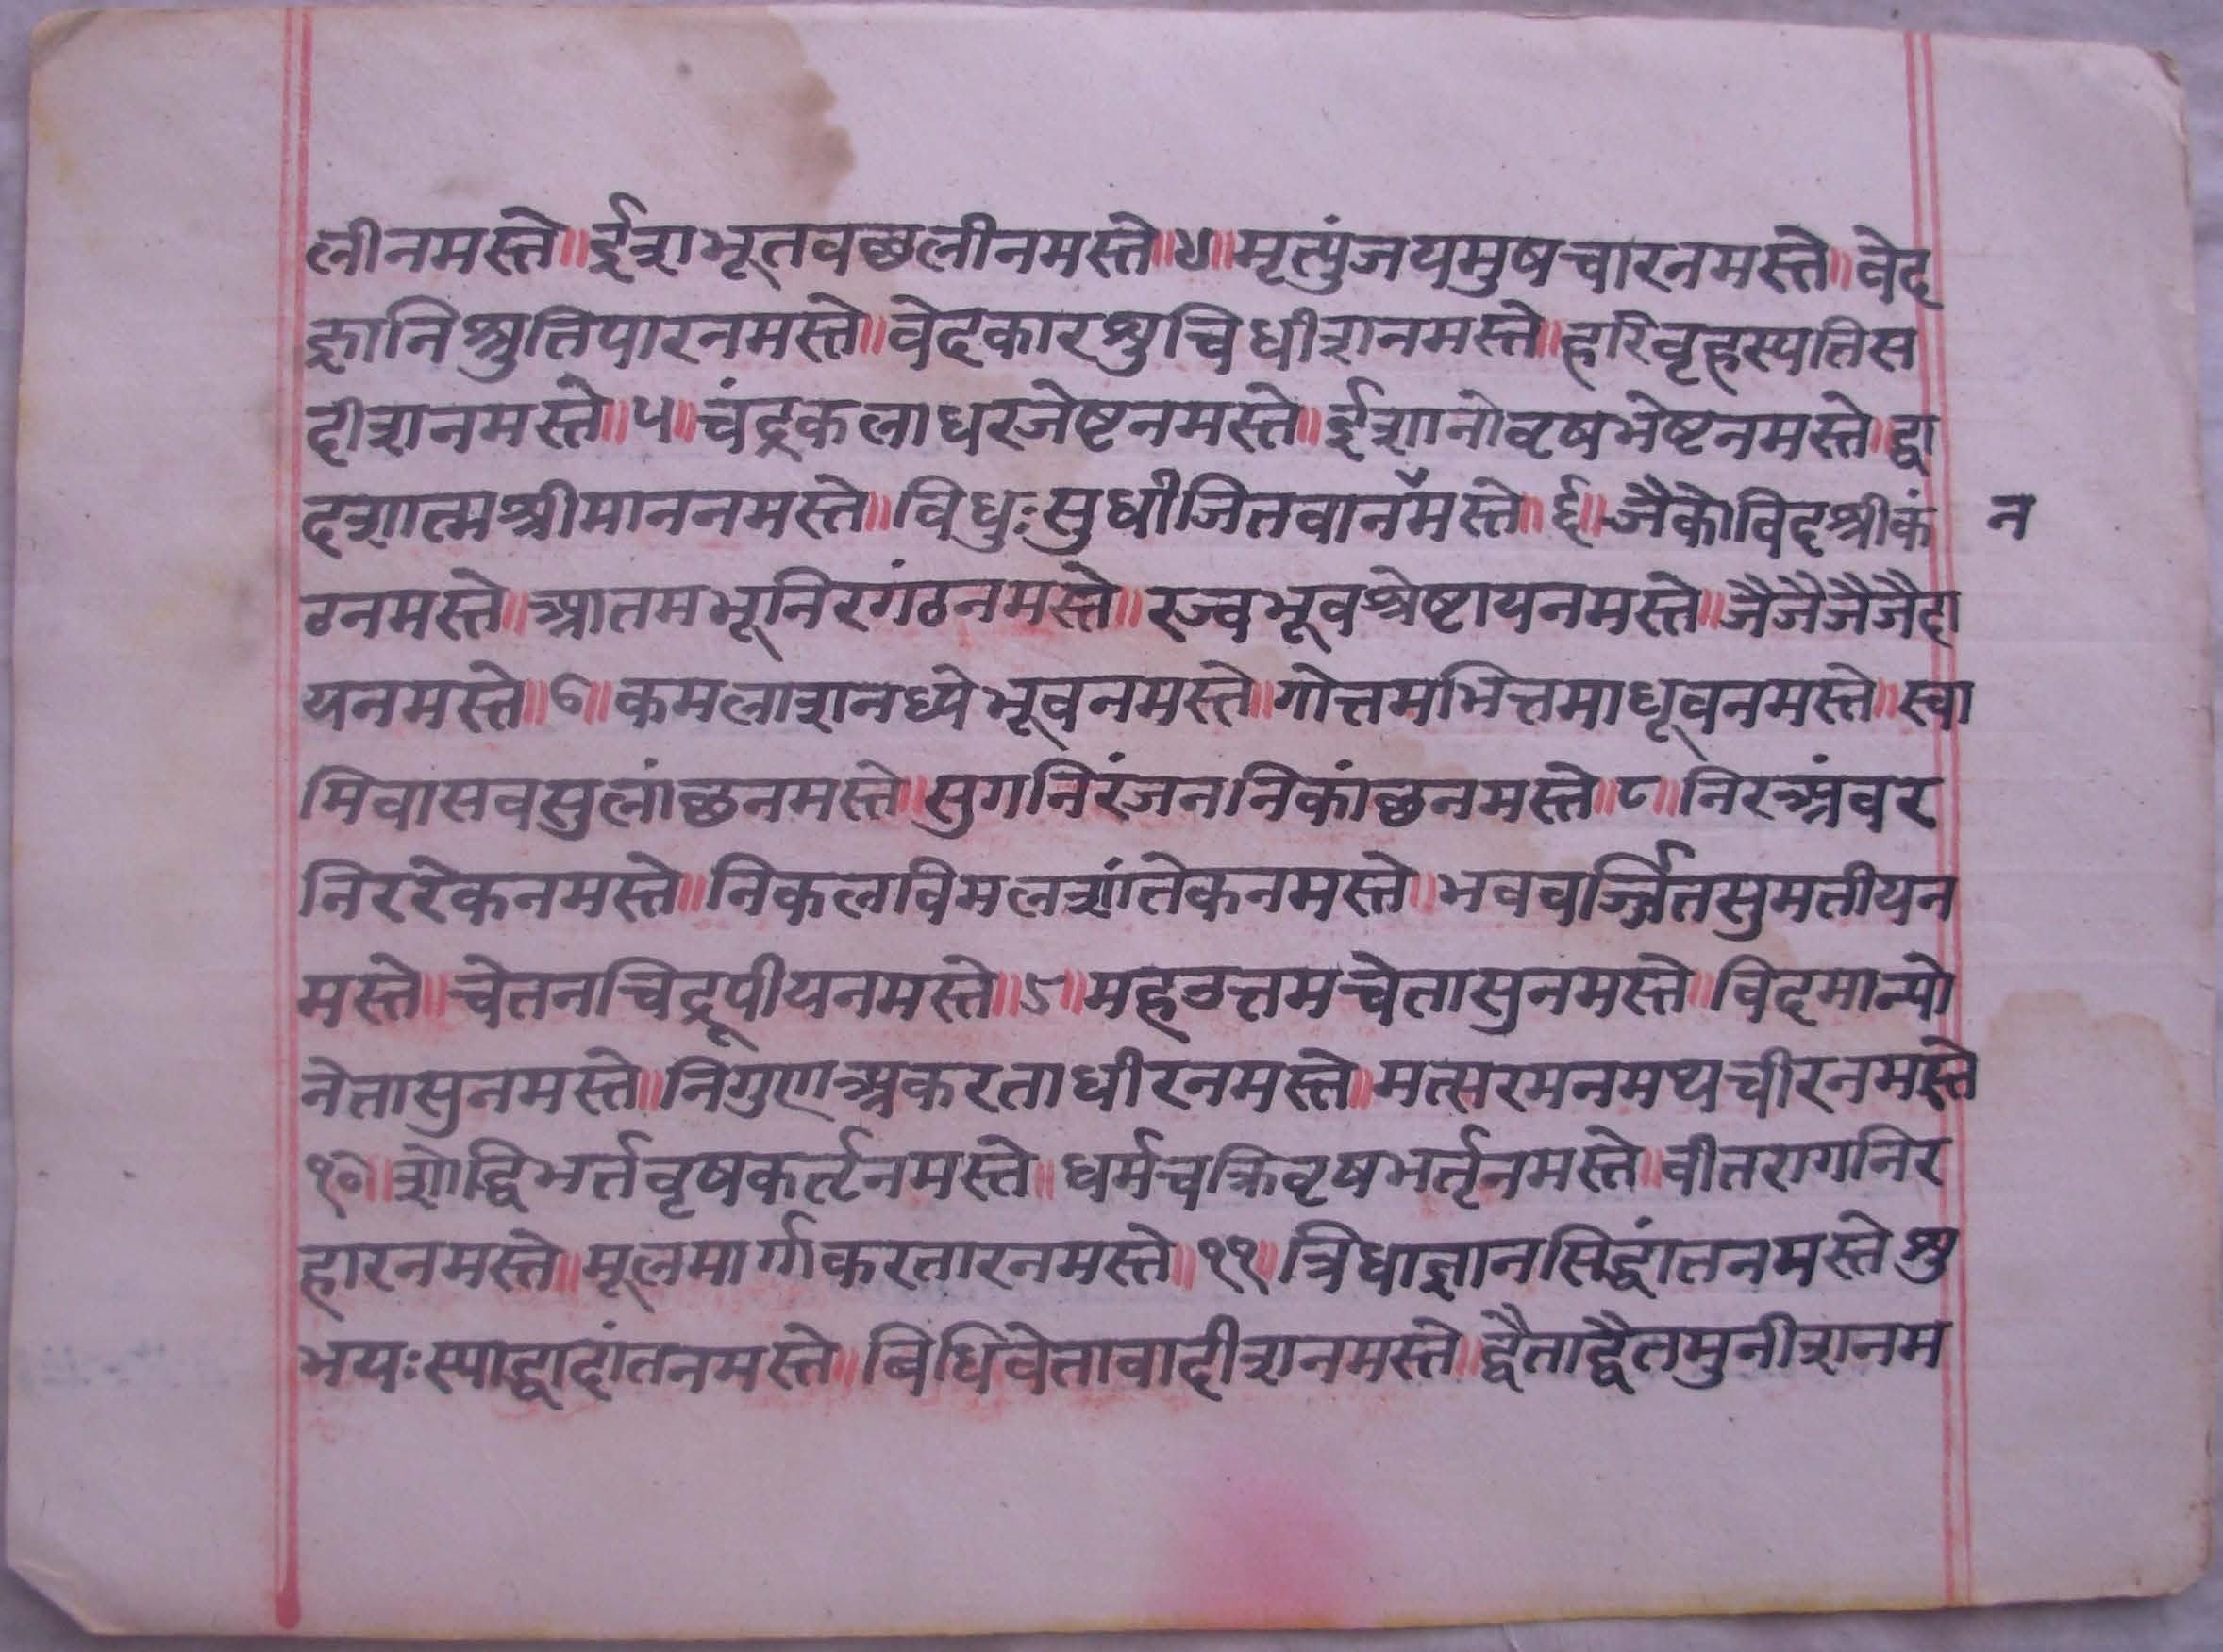 लीनमस्ते॥ईशभूतवछलीनमस्ते॥४॥मृत्युंजयमुषचारनमस्ते॥वेद
ज्ञानिश्रुतिपारनमस्ते॥वेदकारश्रुचिधीशनमस्ते॥हरिवृहस्पतिस
दीशनमस्ते॥५॥चंद्रकलाधरजेष्टनमस्ते॥ईशानोवृषभेष्टनमस्ते॥द्वा
दशात्मश्रीमाननमस्ते॥विधुःसुधीजितवानमस्ते॥६॥जैकोविदश्रीकं न
ठनमस्ते॥आतमभूनिरगंठनमस्ते॥रज्वभूवश्रेष्टायनमस्ते॥जैजैजैजैदा
यनमस्ते॥७॥कमलाशनध्येभूवनमस्ते॥गोत्तमभित्तमाधृवनमस्ते॥स्वा
मिवासवसुलांछनमस्ते॥सुगनिरंजननिकांछनमस्ते॥८॥निरअंवर
निररेकनमस्ते॥निकलविमलशांतेकनमस्ते॥भववर्ज्जितसुमतीयन
मस्ते॥चेतनचिद्रूपीयनमस्ते॥९॥महउत्तमचेतासुनमस्ते॥विदमान्यो
नेतासुनमस्ते॥निगुणअकरताधीरनमस्ते॥मत्सरमनमथचीरनमस्ते
१०॥शोद्विभर्त्तवृषकर्तृनमस्ते॥धर्मचक्रिवृषभर्तृनमस्ते॥वीतरागनिर
हारनमस्ते॥मूलमार्गाकरतारनमस्ते॥११॥त्रिधाज्ञानसिद्धांतनमस्तेशु
भयःस्याद्वादांतनमस्ते॥बिधिवेतावादीशनमस्ते॥द्वैताद्वैतमुनीशनम